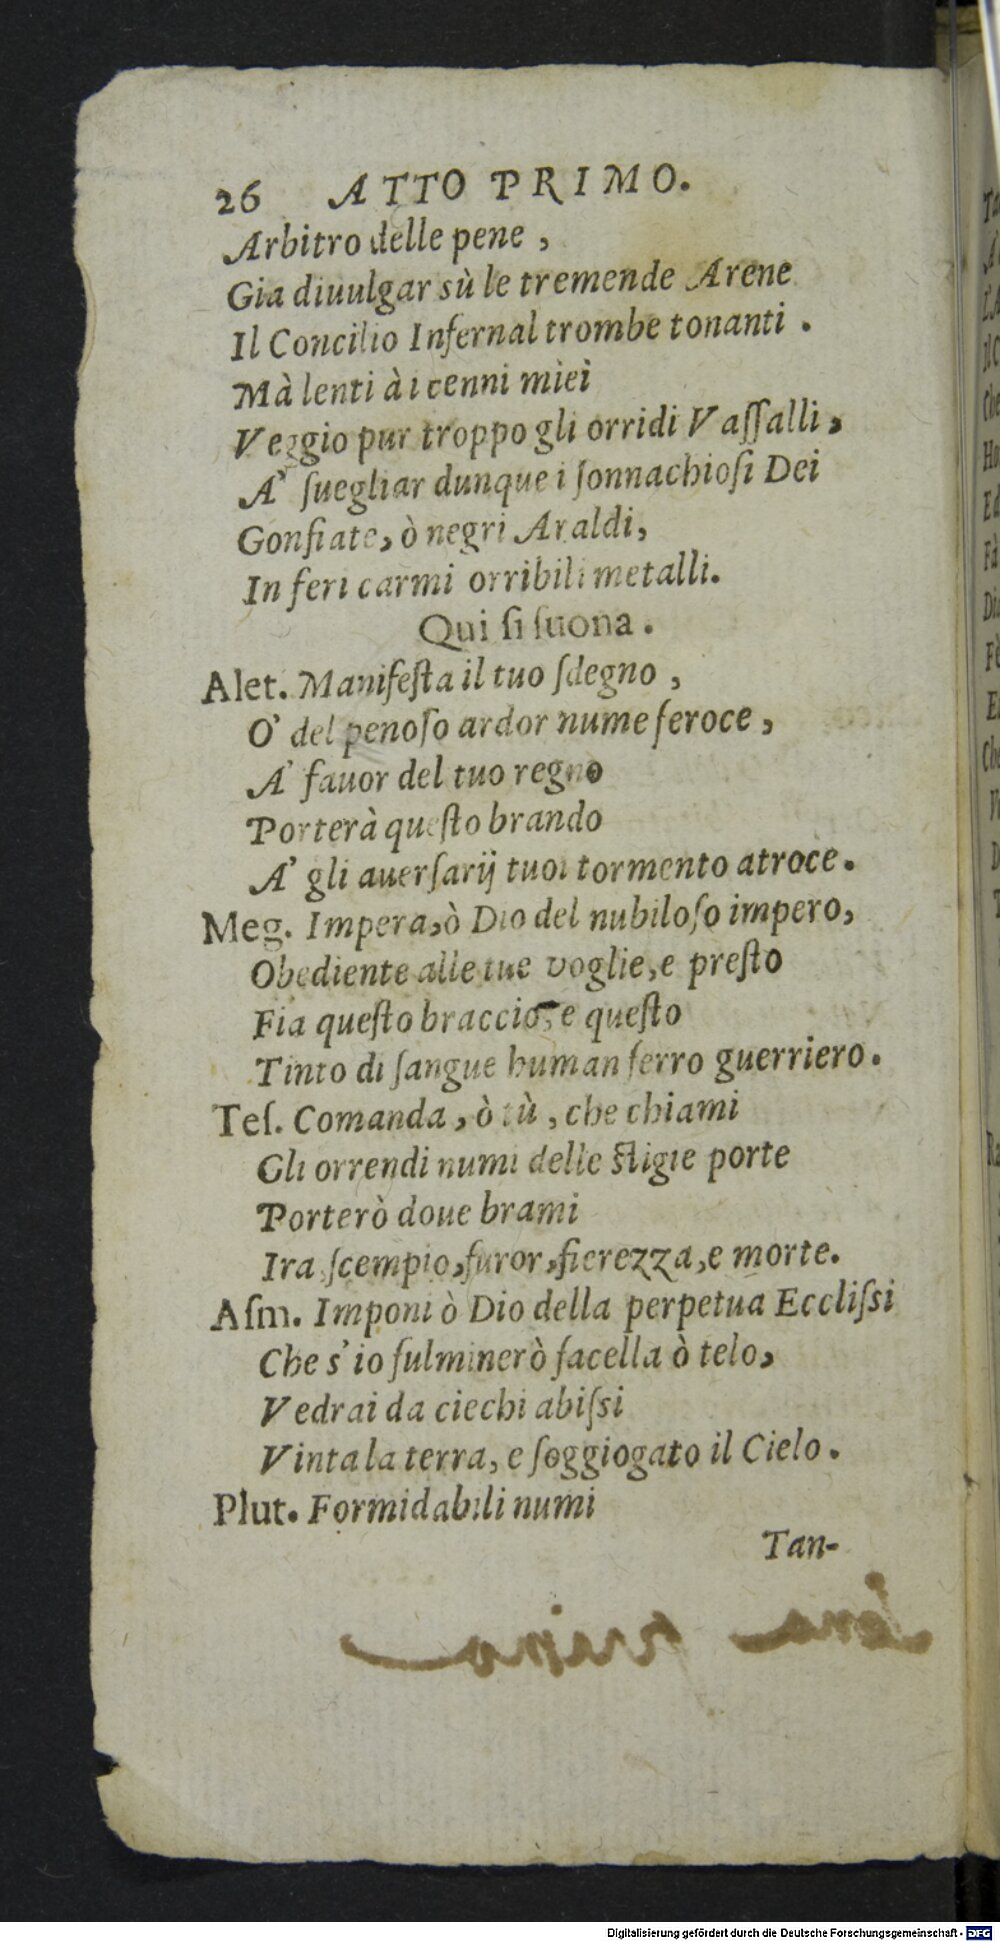 26 ATTO PRIMO.
Arbitro delle pene ,
Gia diuulgar sù le tremende Arene
Il Concilio Infernal trombe tonanti .
Mà lenti à i cenni miei
Veggio pur troppo gli orridi Vaſſalli,
A' ſuegliar dunque i ſonnachioſi Dei
Gonfiate, ò negri Araldi,
In feri carmi orribili metalli.
Qui ſi ſuona .
Alet. Manifeſta il tuo ſdegno ,
O' del penoſo ardor nume feroce ,
A' fauor del tuo regno
Porterà queſto brando
A' gli auerſarij tuoi tormento atroce.
Meg. Impera, ò Dio del nubiloſo impero,
Obediente alle tue voglie, e preſto
Fia queſto braccio, e queſto
Tinto di ſangue human ferro guerriero.
Teſ. Comanda , ò tù , che chiami
Gli orrendi numi delle ſtigie porte
Porterò doue brami
Ira ſcempio, furor, fierezza, e morte.
Aſm. Imponi ò Dio della perpetua Eccliſsi
Che s' io fulminerò facella ò telo,
Vedrai da ciechi abiſsi
Vinta la terra, e ſoggiogato il Cielo .
Plut. Formidabili numi
Tan-
Digitalisierung gefördert durch die Deutsche Forschungsgemeinschaft - DFG